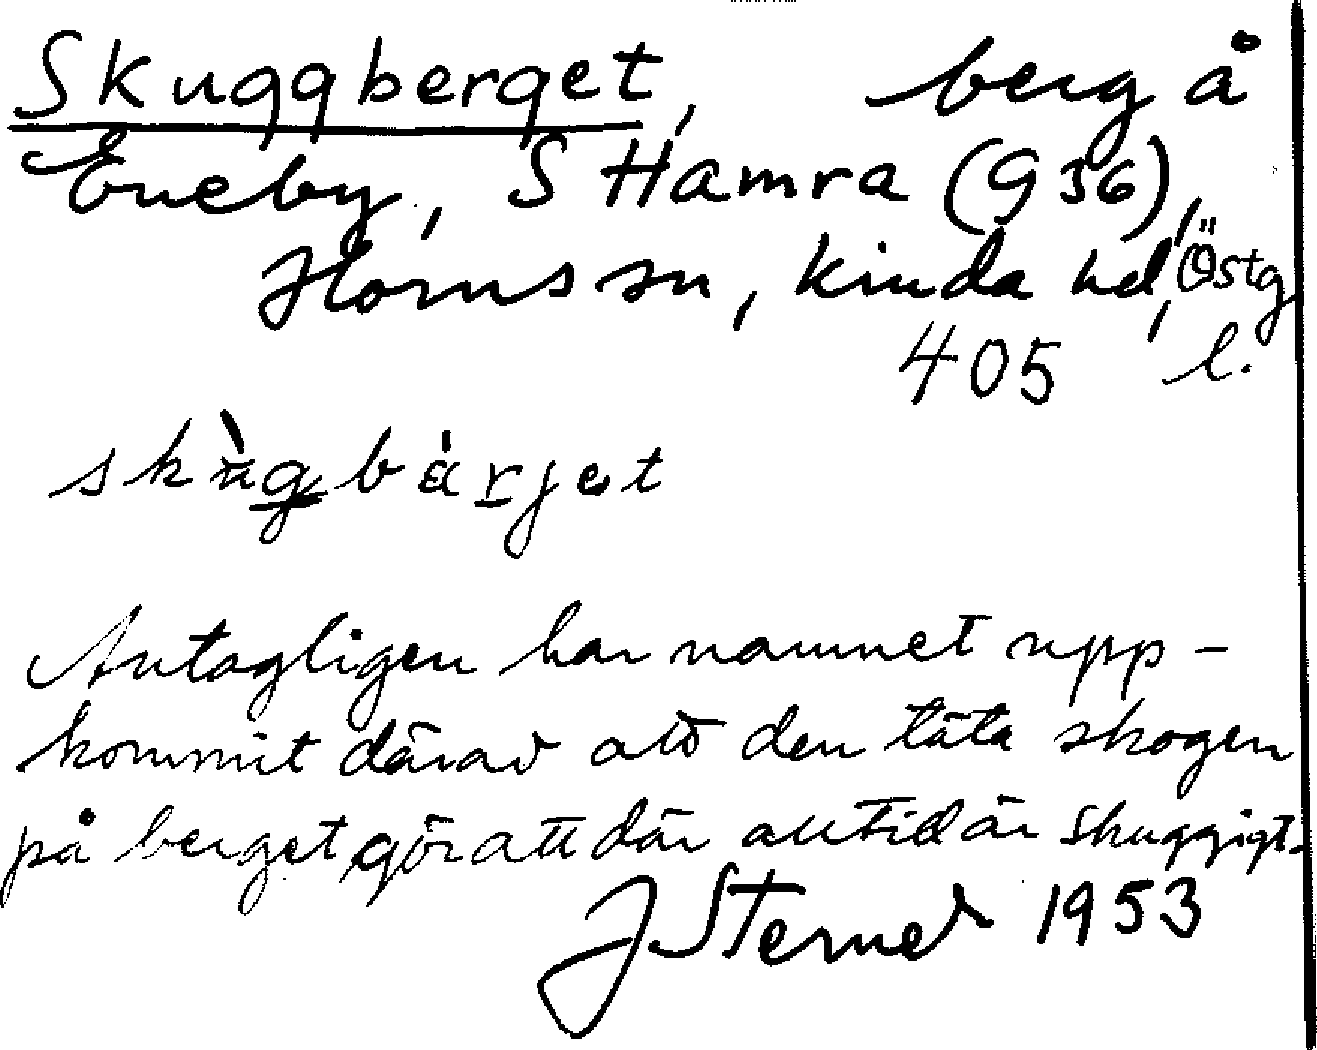 Skuggberget, berg å
Eneby, S Hamra (G 36),
Horns sn, Kinda hd, Östg
405 l.
skùgbá̈rjet
Antagligen har namnet upp-
kommit därav att den täta skogen
på berget, gör att där alltid är skuggigt.
J Sterner 1953